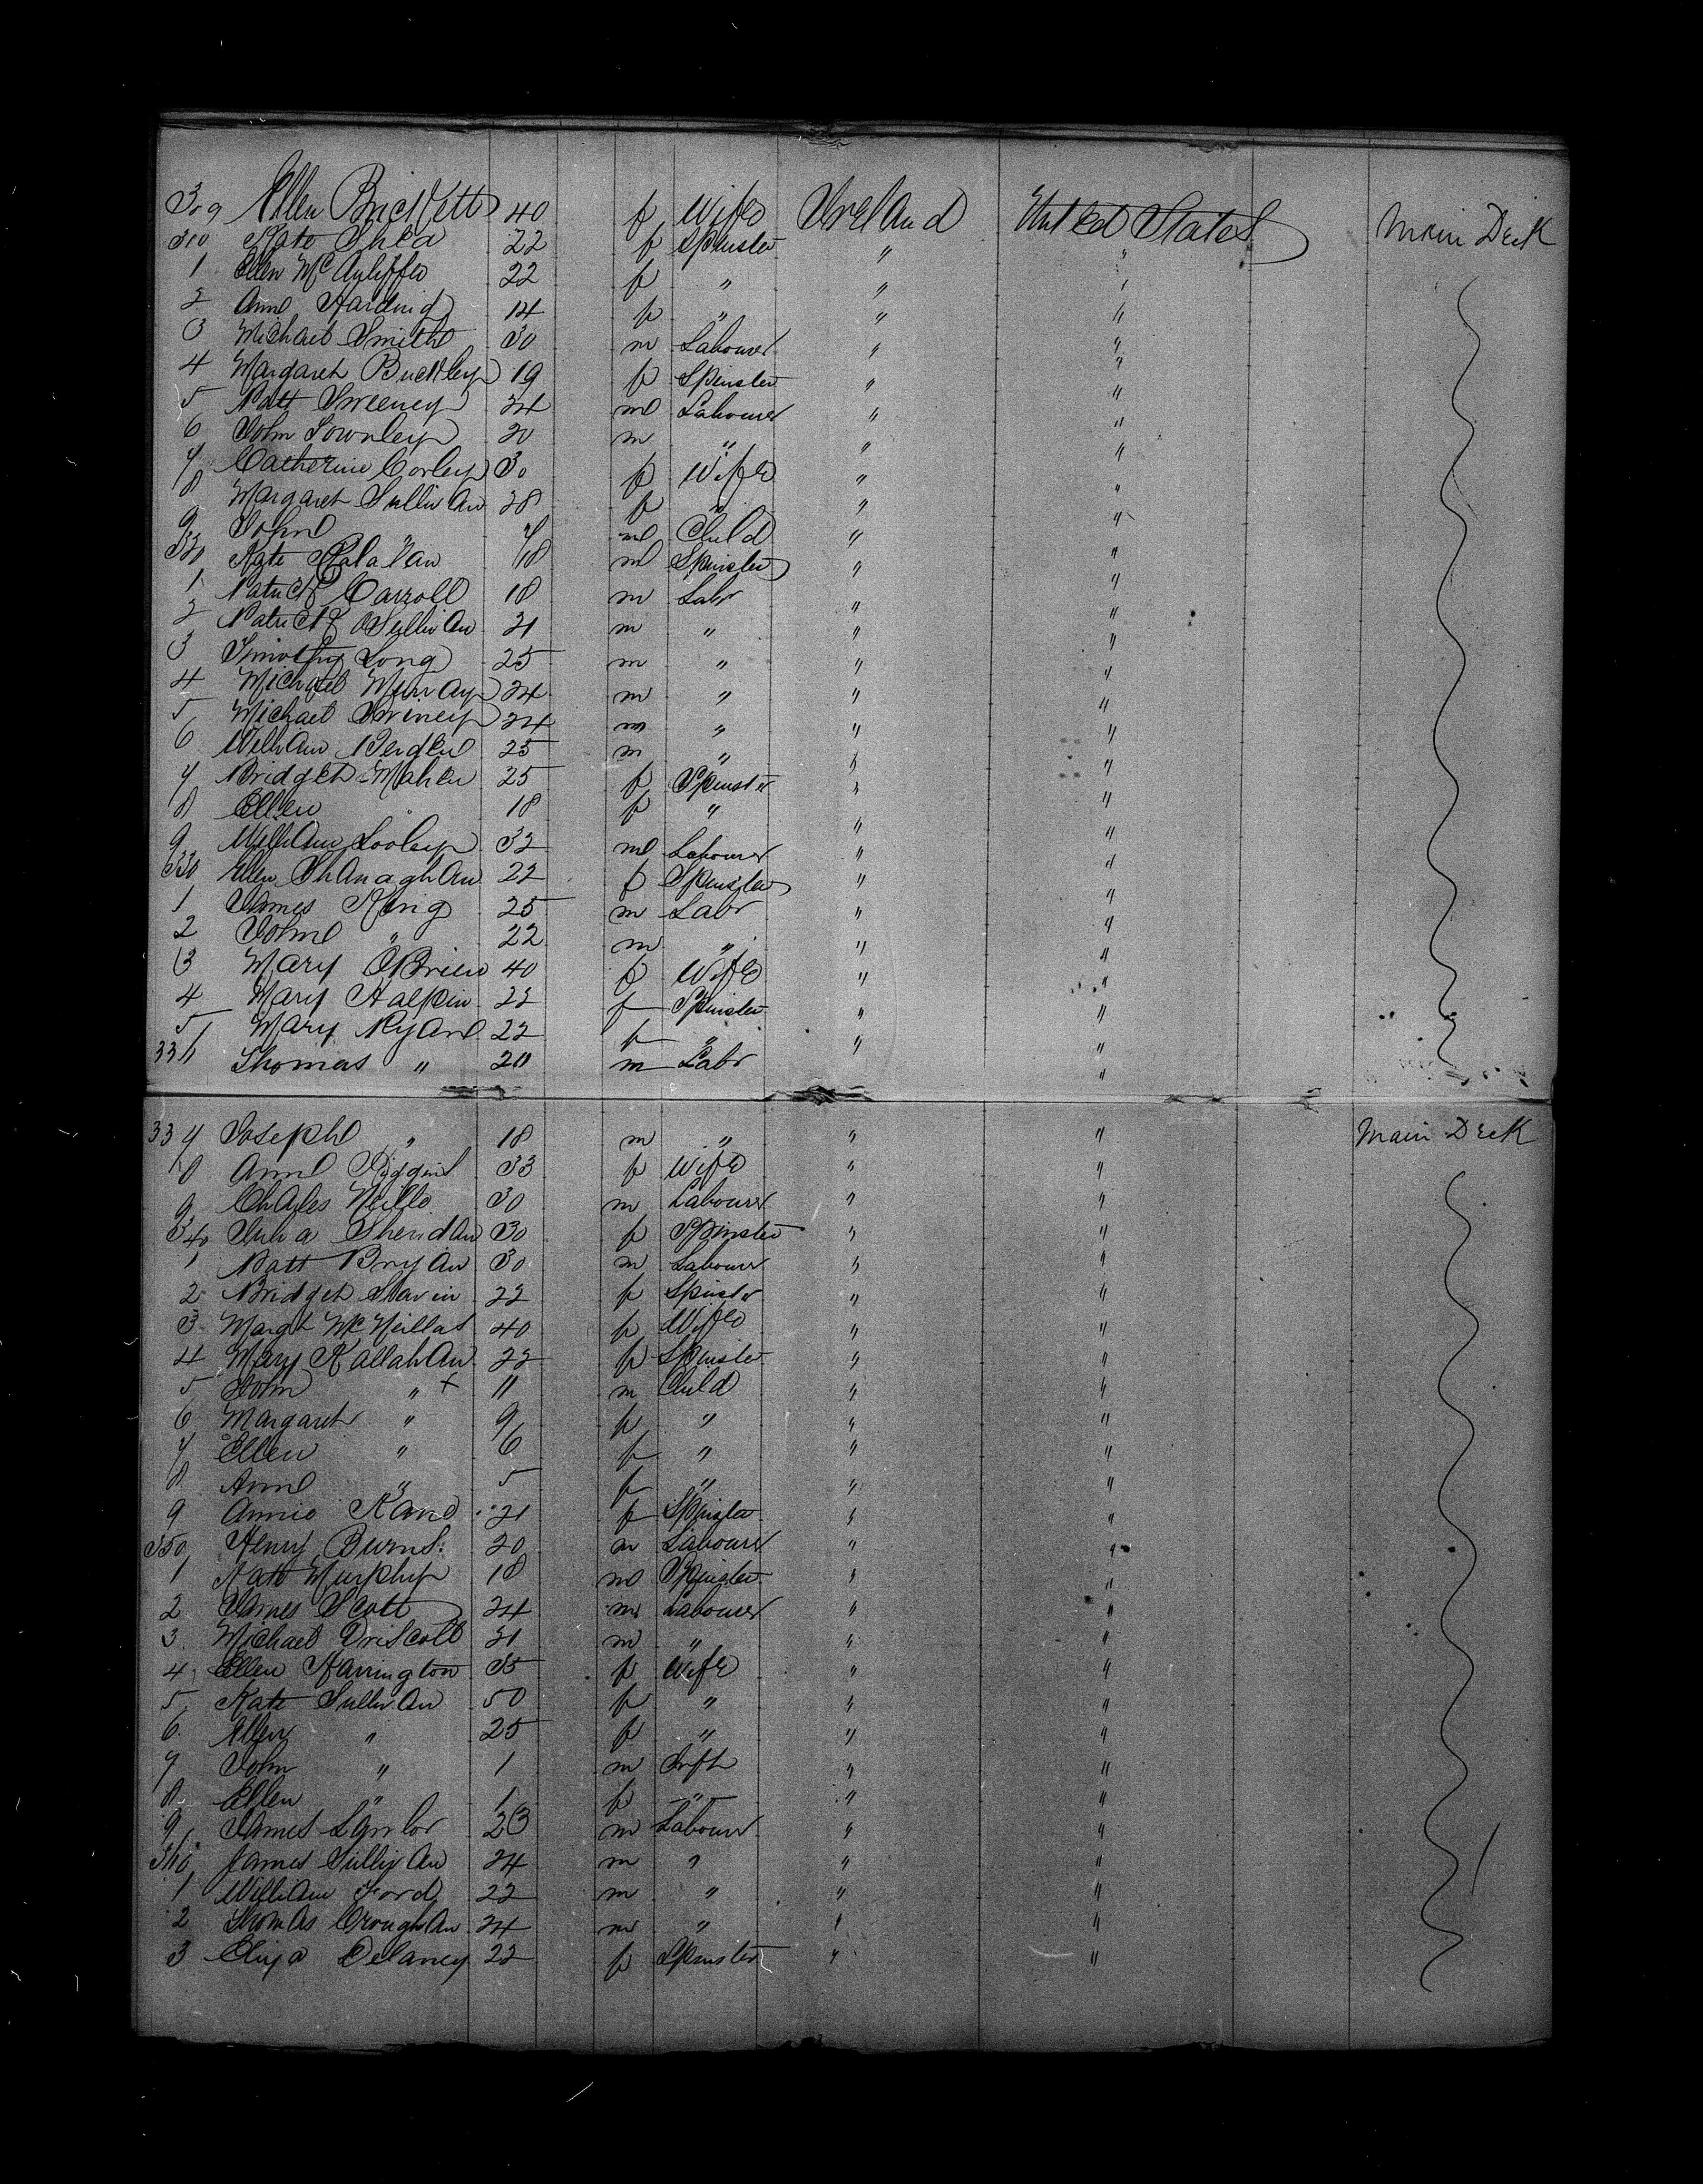 309 Ellen Brickett 40 f Wife Ireland United States Main Deck
310 Kate Shea 22 f Spinster " "
1 Ellen McAuliffe 22 f " " "
2 Ann Harding 14 f " " "
3 Michael Smith 30 m Labourer " "
4 Margaret Buckley 19 f Spinster " "
5 Patt Sweeney 24 m Labourer " "
6 John Townley 20 m " " "
7 Catherine Corley 30 f Wife " "
8 Margaret Sullivan 28 f " " "
9 John 7 m Child " "
320 Kate 18 m Spinster " "
1 Patrick Carroll 18 m Labr " "
2 Patrick OSullivan 21 m " " "
3 Timothy Long 25 m " " "
4 Michael Murray 24 m " " "
5 Michael Swiney 24 m " " "
6 William 25 m " " "
7 Bridget Maher 25 f Spinster " "
8 Ellen 18 f " " "
9 William Looley 32 m Labourer " "
330 Ellen Shanaghan 22 f Spinster " "
1 James King 25 m Labr " "
2 John " 22 m " " "
3 Mary OBrien 40 f Wife " "
4 Mary Halpin 22 f Spinster " "
5 Mary Ryan 22 f " " "
336 Thomas " 20 m Labr "
337 Joseph " 18 m " " " Main Deck
8 Ann Higgins 33 f Wife " "
9 Charles Neills 30 m Labourer " "
340 Julia Sheridan 30 f Spinster " "
1 Patt Bryan 30 m Labourer " "
2 Bridget Slavin 22 f Spinster " "
3 Margt 40 f Wife " "
4 Mary Kallahan 22 f Spinster " "
5 John " + 11 m Child " "
6 Margaret " 9 f " " "
7 Ellen " 6 f " " "
8 Ann " 5 f " " "
9 Annie Kane 21 f Spinster " "
350 Henry Burns 20 m Labourer " "
1 Kate Murphy 18 m Spinster " "
2 James Scott 24 m Labourer " "
3 Michael Driscoll 21 m " " "
4 Ellen Harrington 35 f Wife " "
5 Kate Sullivan 50 f " " "
6 Ellen " 25 f " " "
7 John " 1 m Inft " "
8 Ellen " 1 f " " "
9 James Lawlor 23 m Labourer " "
360 James Sullivan 24 m " " "
1 William Ford 22 m " " "
2 Thomas Croughan 24 m " " "
3 Eliza Delaney 22 f Spinster " "